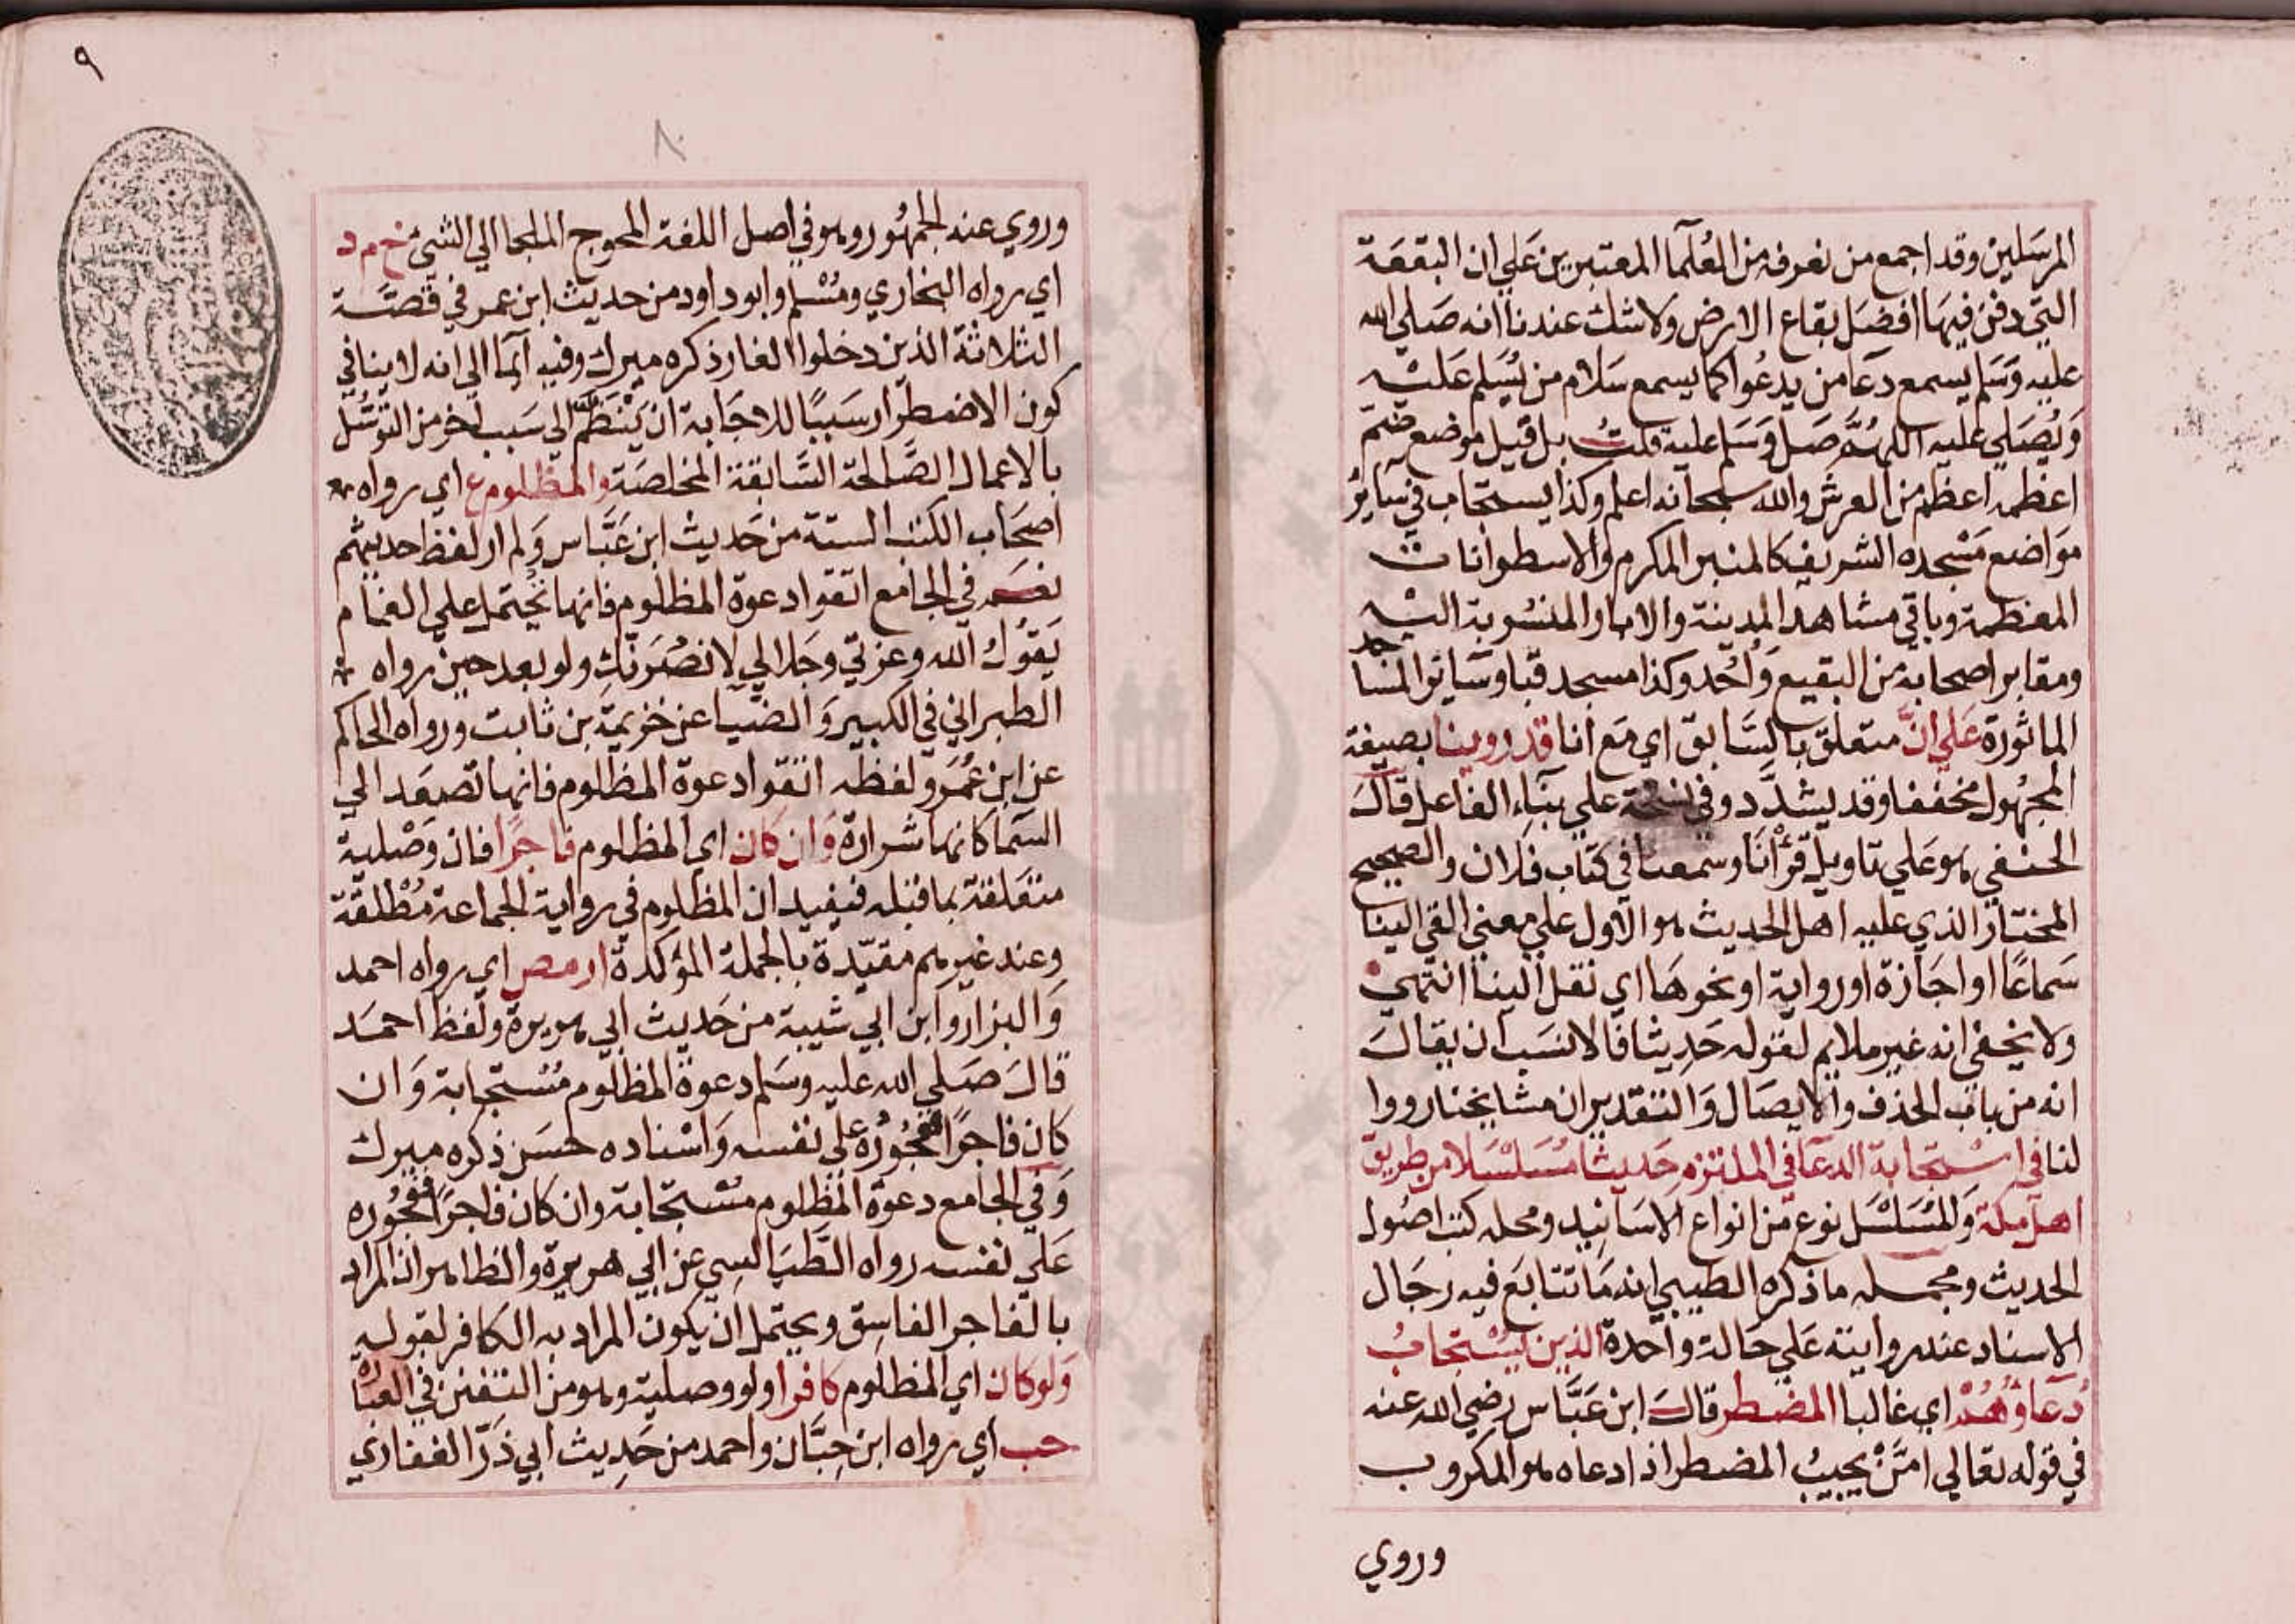 المرسلين وقد اجمع من نعرفه من العلما المعتبرين علي ان البقعة
التي دفن فيها افضل بقاع الارض ولا شك عندنا انه صلي الله
عليه وسلم يسمع دعا من يدعوا كما يسمع سلام من يسلم عليه
ويصلي عليه اللهم صل وسلم عليه قلت بل قيل موضع ضم
اعظمه اعظم من العرش والله سبحانه اعلم وكذا يستجاب في ساير
مواضع مسجده الشريف كالمنبر المكرم والاسطوانات
المعظمة وباقي مشاهد المدينة والابار المنسوبة اليه
ومقابر اصحابه من البقيع وأحد وكذا مسجد قبا وساير المساجد
الماثورة علي انّ متعلق بالسابق اي مع انا قد روينا بصيغة
المجهول مخففا وقد يشدّد وفي نسخة علي بناء الفاعل قال
الحنفي هو علي تاويل قرأنا وسمعنا في كتاب فلان والصحيح
المختار الذي عليه اهل الحديث هو الاول علي معني القي الينا
سماعًا او اجازة او رواية او نحوها اي نقل الينا انتهي
ولا يخفي انه غير ملايم لقوله حديثا فالانسب ان يقال
انه من باب الحذف والايصال والتقدير ان مشايخنا رووا
لنا في استجابة الدعا في الملتزم حديثا مسلسلا من طريق
اهل مكة والمسلسل نوع من انواع الاسانيد ومحله كتب اصول
الحديث ومجمله ما ذكره الطيبي انه ما تتابع فيه رجال
الاسناد عند روايته علي حالة واحدة الذين يستجاب
دعاؤهم اي غالبا المضطر قال ابن عباس رضي الله عنه
في قوله تعالي امّن يجيب المضطر اذا دعاه هو المكروب
وروي
٩
٨
وروي عنه الجمهور وهو في اصل اللغة المحوج الملجا الي الشئ خ م د
اي رواه البخاري ومسلم وابو داود من حديث ابن عمر في قصة
الثلاثة الذين دخلوا الغار ذكره ميرك وفيه ايما الي انه لا ينافي
كون الاضطرار سببًا للاجابة ان ينتظم الي سبب اخر من التوسل
بالاعمال الصالحة السابقة المخلصة والمظلوم ع اي رواه
اصحاب الكتب الستة من حديث ابن عباس ولم ار لفظ احديهم
نعم في الجامع اتقوا دعوة المظلوم فانها تحتمل علي الغمام
يقول الله وعزتي وجلالي لانصرنك ولو بعد حين رواه
الطبراني في الكبير والضيا عن خزيمة بن ثابت ورواه الحاكم
عن ابن عمر ولفظه اتقوا دعوة المظلوم فانها تصعد الي
السما كانها شرارة وان كان اي المظلوم فاجرًا فان وصلية
متعلقة بما قبله فيفيد ان المظلوم في رواية الجماعة مطلقة
وعند غيرهم مقيّدة بالجملة المؤكدة ار مص اي رواه احمد
والبزار وابن ابي شيبة من حديث ابي هريرة ولفظ احمد
قال صلي الله عليه وسلم دعوة المظلوم مستجابة وان
كان فاجرًا ففجوره علي نفسه واسناده حسن ذكره ميرك
وفي الجامع دعوة المظلوم مستجابة وان كان فاجرًا ففجوره
علي نفسه رواه الطيالسي عن ابي هريرة والظاهر ان المراد
بالفاجر الفاسق ويحتمل ان يكون المراد به الكافر لقوله
ولو كان اي المظلوم كافرا ولو وصلية وهو من التفنن في العبارة
حب اي رواه ابن حبّان واحمد من حديث ابي ذرّ الغفاري